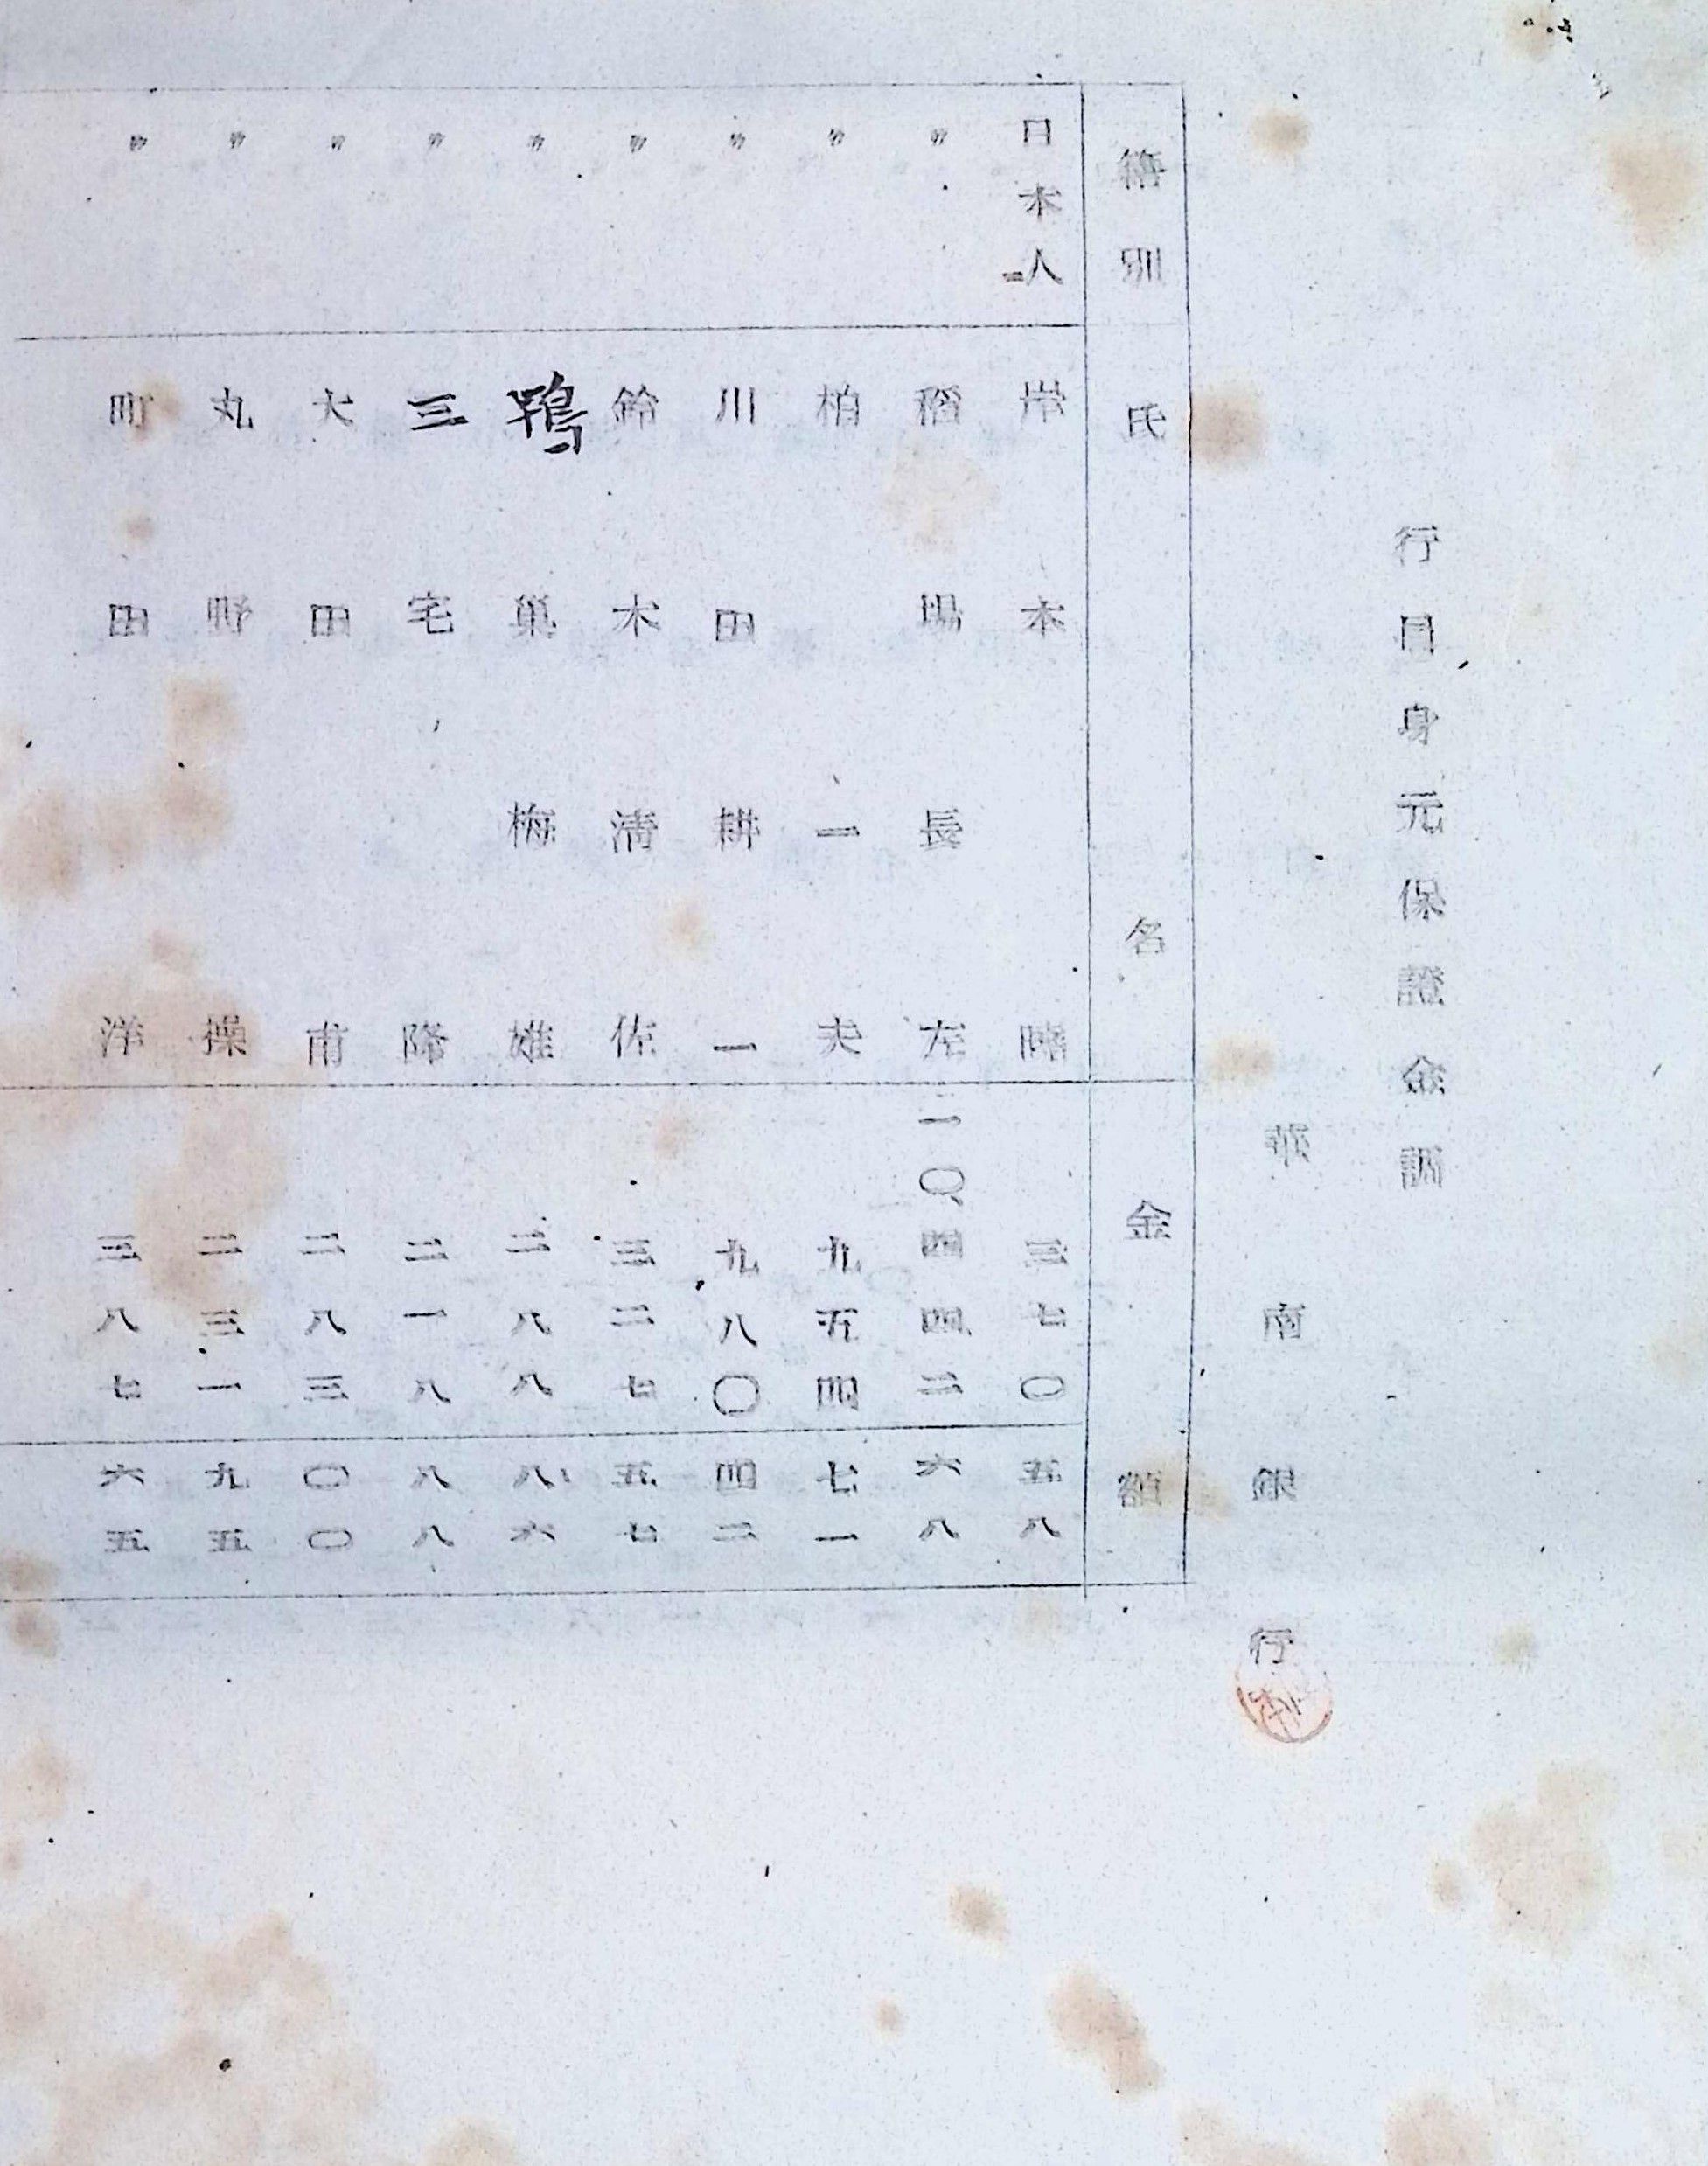 行員身元保證金調
華南銀行
籍別 氏名 金額
日本人 岸本 三七〇 五八
〃 稻場長左 一〇、四四二 六八
〃 柏一夫 九五四 七一
〃 川田耕一 九八〇 四二
〃 鈴木清佐 三二七 五七
〃 鴨巣梅雄 二八八 八六
〃 三宅隆 二一八 八八
〃 大田甫 二八三 〇〇
〃 丸野操 二三一 九五
〃 町田洋 三八七 六五